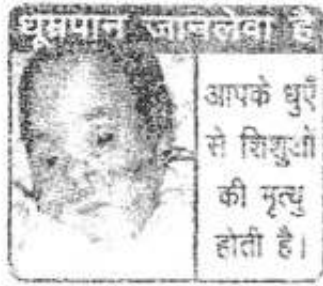 धूम्रपान जानलेवा है
आपके धुएँ
से शिशुओं
की मृत्यु
होती है।